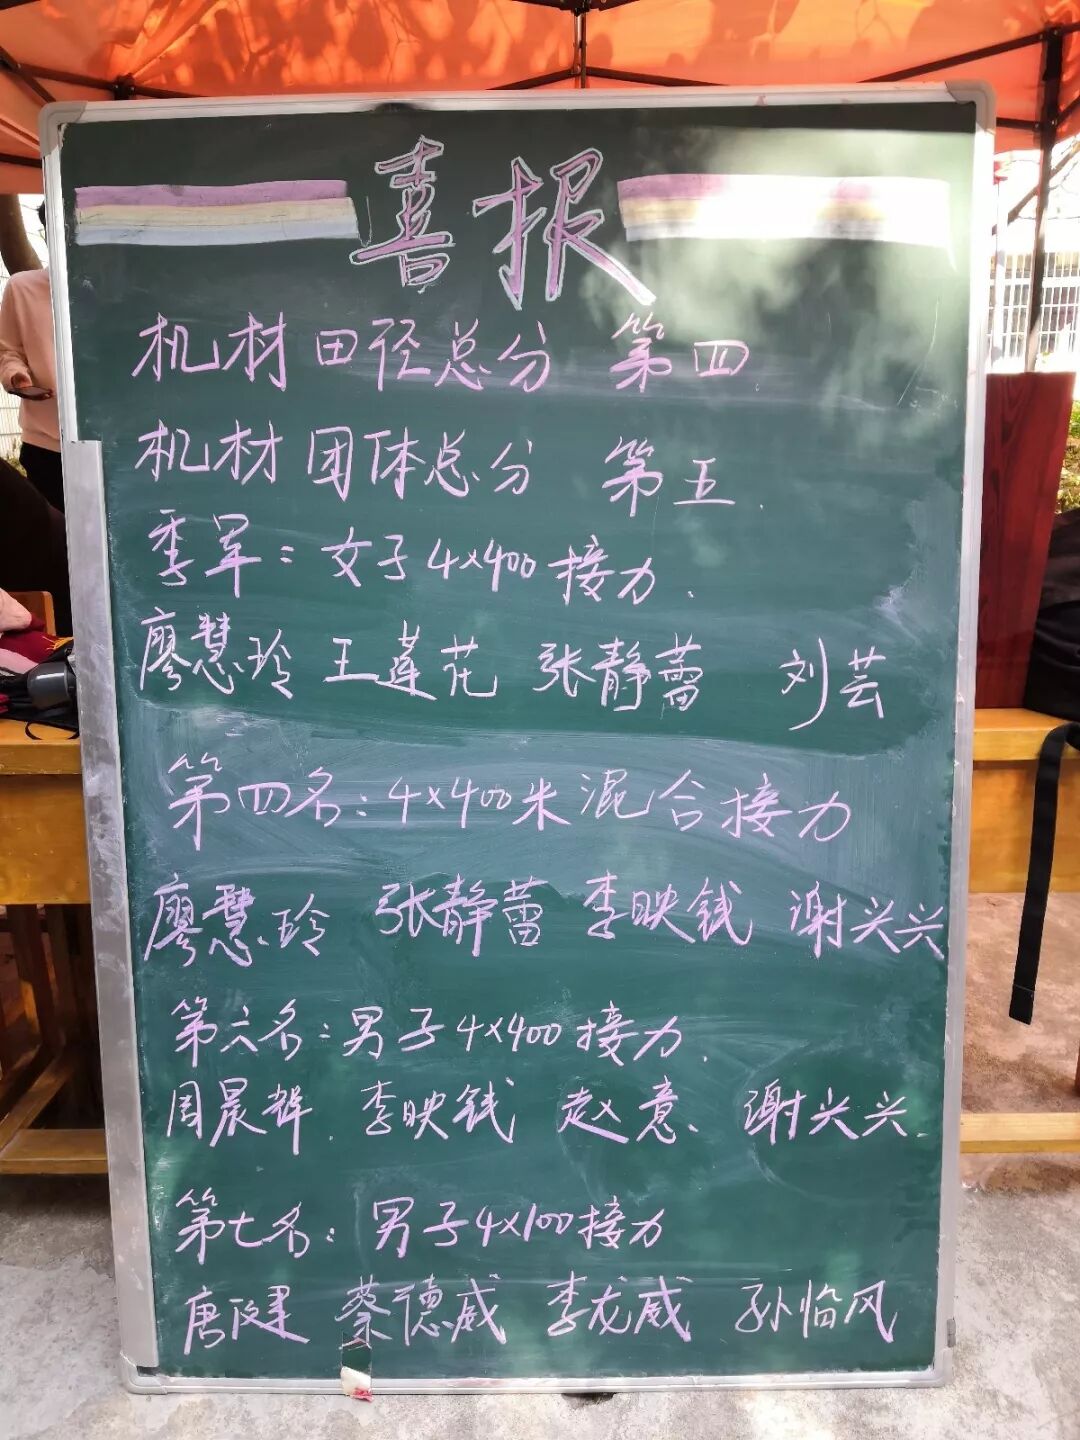 喜报
机材田径总分 第四.
机材团体总分 第五.
季军:女子4×400接力.
廖慧玲 王莲花 张静蕾 刘芸
第四名:4×400米混合接力
廖慧玲 张静蕾 李映钱 谢兴兴
第六名:男子4×400接力.
周晨辉. 李映钱 赵意 谢兴兴.
第七名:男子4×100接力
唐健 蔡德威 李龙威 孙临风